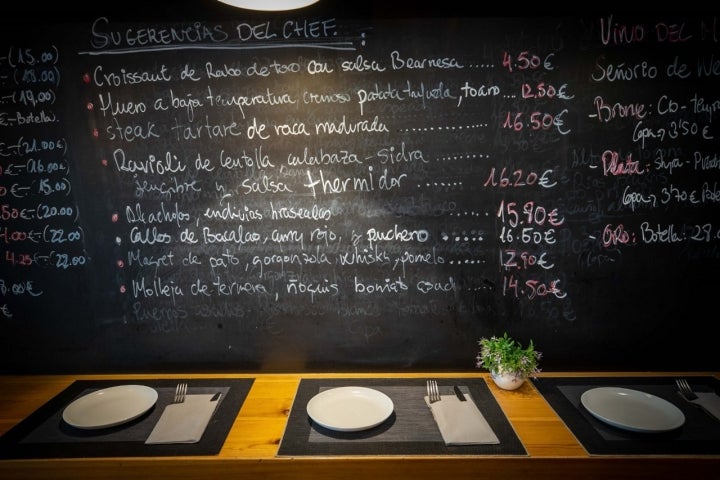 SUGERENCIAS DEL CHEF.:
Croissant de Rabo de toro con salsa Bearnesa ..... 4.50€
Huevo a baja temperatura cremoso patata trufada, toaro ... 12.50€
steak tartare de vaca madurada .............. 16.50€
Ravioli de Centolla calabaza-sidra ......
jengibre y salsa thermidor ...... 16.20€
Alcachofas, endivias braseadas ..... 15.90€
Callos de Bacalao, curry rojo, y puchero ..... 16.50€
Magret de pato, gorgonzola, whisky, pomelo ..... 12.90€
Molleja de ternera, ñoquis boniato asado 14.50€
(15.00)
(18.00)
(19,00)
€-Botella.
€-(21.00€
€-(16.00€
(15.00)
50€-(20.00)
4.00€-(22.00
4.25€-(22.00
.00€
VINO DEL
Señorío de
-Bronce: Cto-
Copa→ 3'50€
-Plata:
Copa→ 3'70€
-Oro: Botella: 28.0